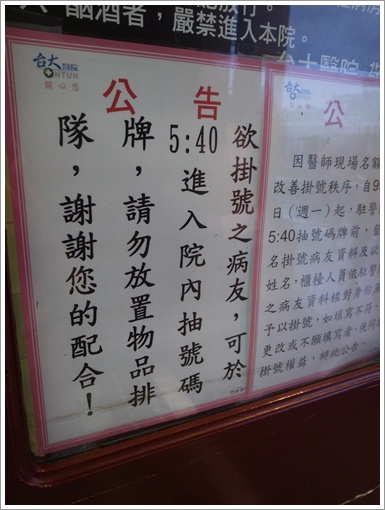 酗酒者，嚴禁進入本院。
台大醫院
台大醫院
NTUH
關心您
公告
欲掛號之病友，可於
5:40進入院內抽號碼
牌，請勿放置物品排
隊，謝謝您的配合！
台大醫院
NTUH
公
因醫師現場名額
改善掛號秩序，自9
日（週一）起，駐警
5:40抽號碼牌前，
名掛號病友資料及欲
姓名，櫃檯人員依駐警
之病友資料核對身份
予以掛號，如填寫不符，
更改或不願填寫者，視同
掛號權益，特此公告。